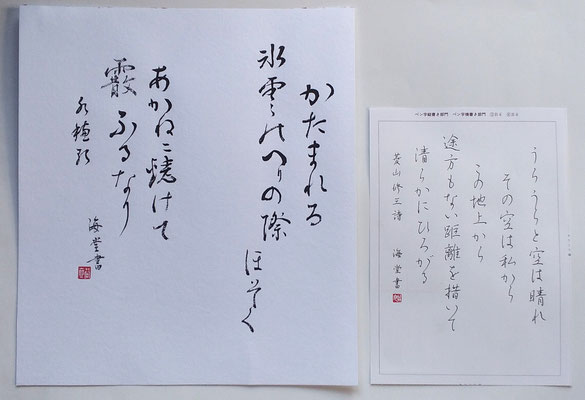 かたまれる
へりの際ほそく
あかねに燒けて
霰ふるなり
海堂書
ペン字縦書き部門 ペン字横書き部門
うらうらと空は晴れ
その空は私から
この地上から
途方もない距離を描いて
清らかにひろがる
山修三詩 海堂書